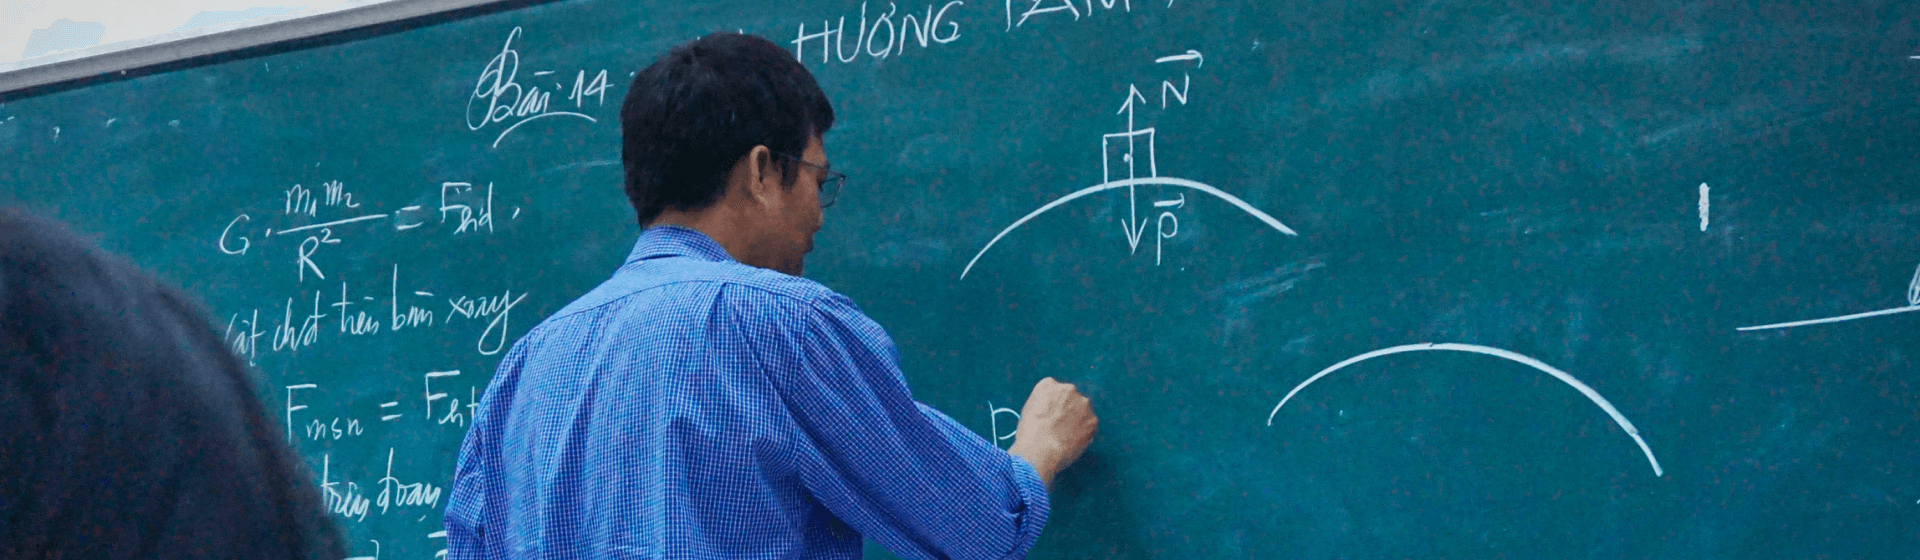 Bài 14
HƯỚNG TÂM
G. m₁m₂ / R² = Fhd.
vật chất trên bàn xoay
Fmsn = Fht
trên đoạn
N
P
P